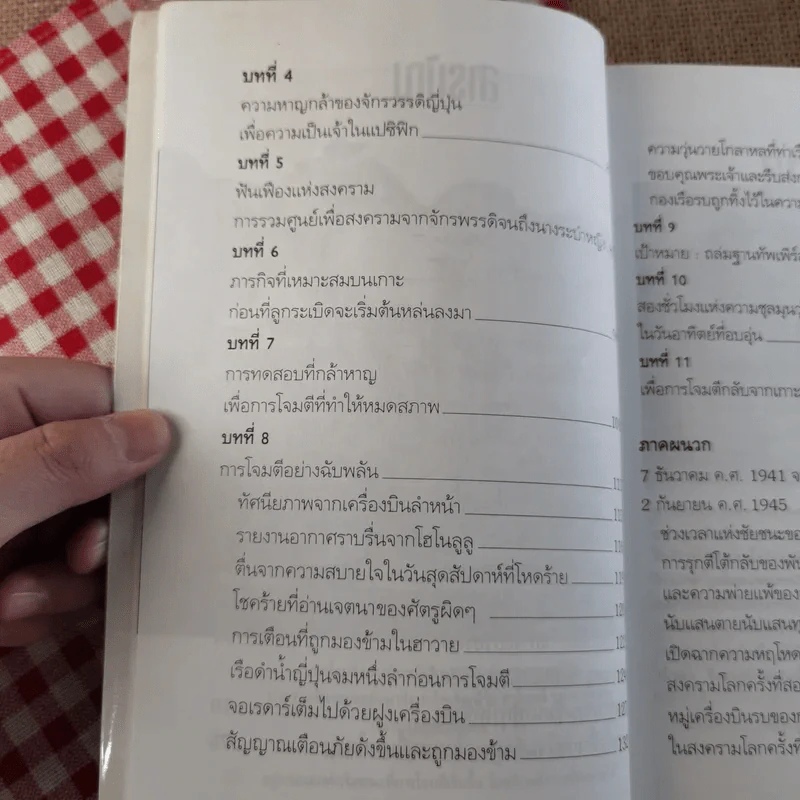 บทที่ 4
ความหาญกล้าของจักรวรรดิญี่ปุ่น
เพื่อความเป็นเจ้าในแปซิฟิก
บทที่ 5
ฟันเฟืองแห่งสงคราม
การรวมศูนย์เพื่อสงครามจากจักรพรรดิจนถึงนางระบำหญิง
บทที่ 6
ภารกิจที่เหมาะสมบนเกาะ
ก่อนที่ลูกระเบิดจะเริ่มต้นหล่นลงมา
บทที่ 7
การทดสอบที่กล้าหาญ
เพื่อการโจมตีที่ทำให้หมดสภาพ
บทที่ 8
การโจมตีอย่างฉับพลัน
ทัศนียภาพจากเครื่องบินลำหน้า
รายงานอากาศราบรื่นจากโฮโนลูลู
ตื่นจากความสบายใจในวันสุดสัปดาห์ที่โหดร้าย
โชคร้ายที่อ่านเจตนาของศัตรูผิดๆ
การเตือนที่ถูกมองข้ามในฮาวาย
เรือดำน้ำญี่ปุ่นจมหนึ่งลำก่อนการโจมตี
จอเรดาร์เต็มไปด้วยฝูงเครื่องบิน
สัญญาณเตือนภัยดังขึ้นและถูกมองข้าม
ความวุ่นวายโกลาหลที่ท่าเรือ
ขอบคุณพระเจ้าและรีบส่ง
กองเรือรบถูกทิ้งไว้ในความ
บทที่ 9
เป้าหมาย : ถล่มฐานทัพเพิร์ล
บทที่ 10
สองชั่วโมงแห่งความชุลมุน
ในวันอาทิตย์ที่อบอุ่น
บทที่ 11
เพื่อการโจมตีกลับจากเกาะ
ภาคผนวก
7 ธันวาคม ค.ศ. 1941
2 กันยายน ค.ศ. 1945
ช่วงเวลาแห่งชัยชนะของ
การรุกตีโต้กลับของพัน
และความพ่ายแพ้ของ
นับแสนตายนับแสน
เปิดฉากความหฤโหด
สงครามโลกครั้งที่สอง
หมู่เครื่องบินรบของ
ในสงครามโลกครั้งที่